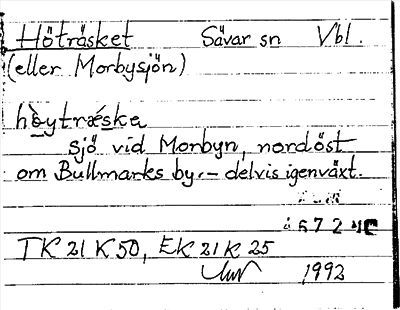 Höträsket Sävar sn Vbl.
(eller Morbysjön)
hò̤ytræ̀ska
sjö vid Morbyn, nordöst
om Bullmarks by. – delvis igenväxt.
TK 21 K 50, EK 21 K 25
1992